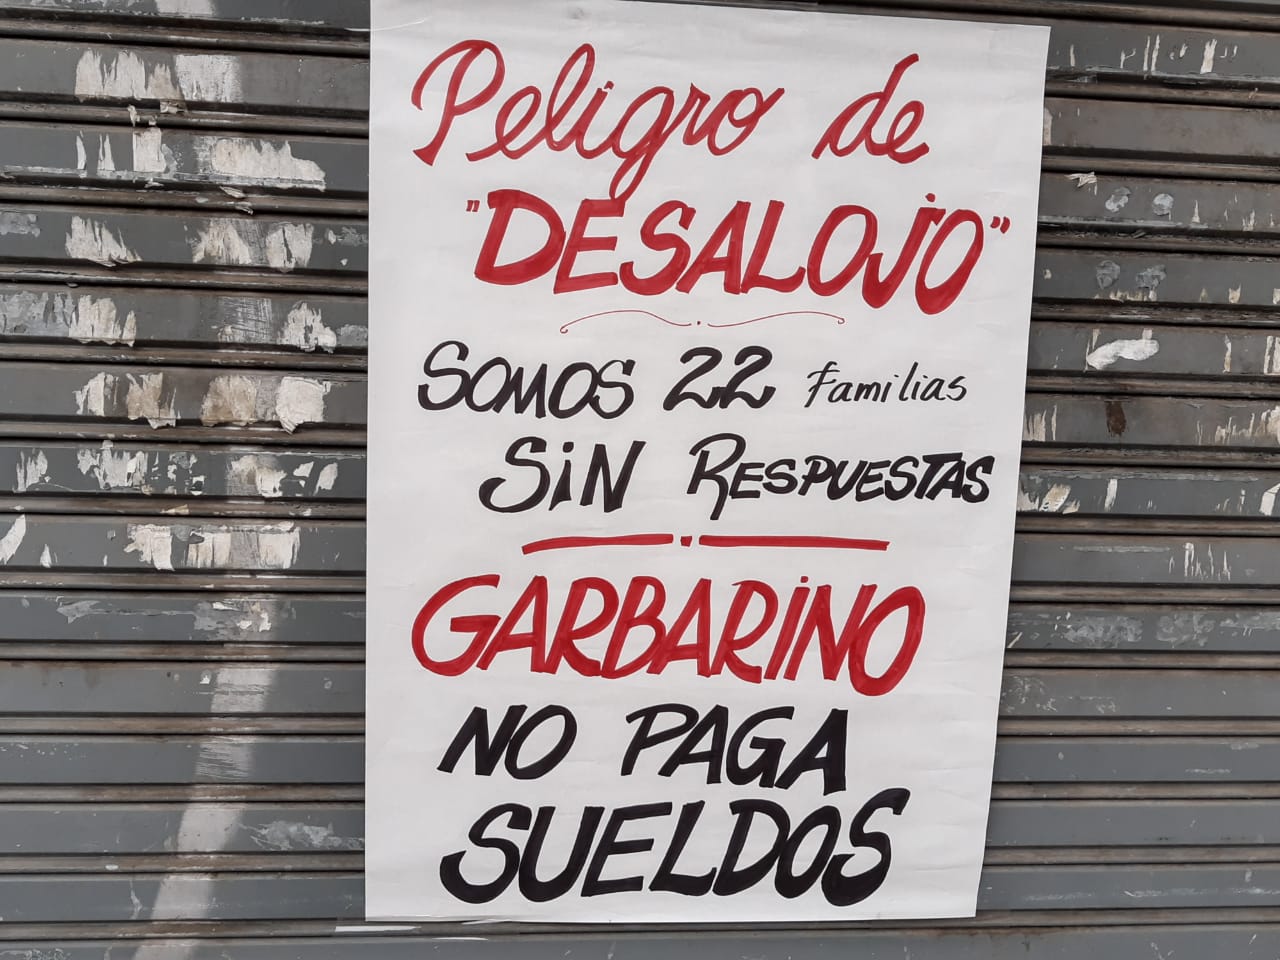 Peligro de
"DESALOJO"
SOMOS 22 Familias
SiN RESPUESTAS
GARBARiNO
NO PAGA
SUELDOS